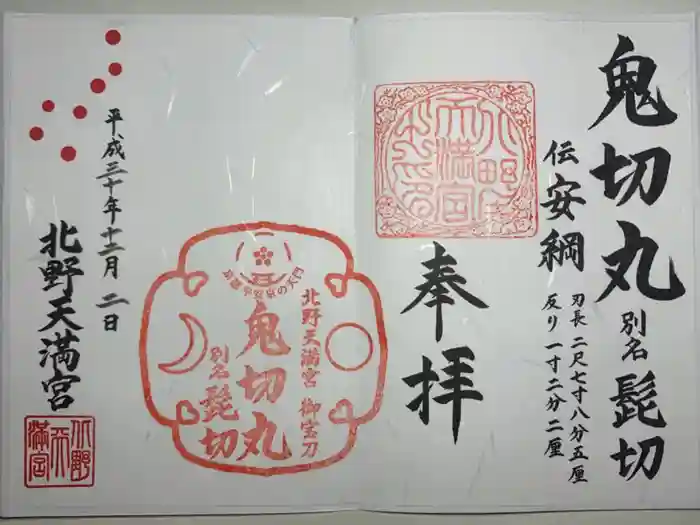 鬼切丸 別名 髭切
伝 安綱
刃長 二尺七寸八分五厘
反り 一寸二分二厘
奉拝
北野
天満宮
北野天満宮 御宝刀
鬼切丸
別名 髭切
平成三十年十二月 二日
北野天満宮
北野
天
満宮